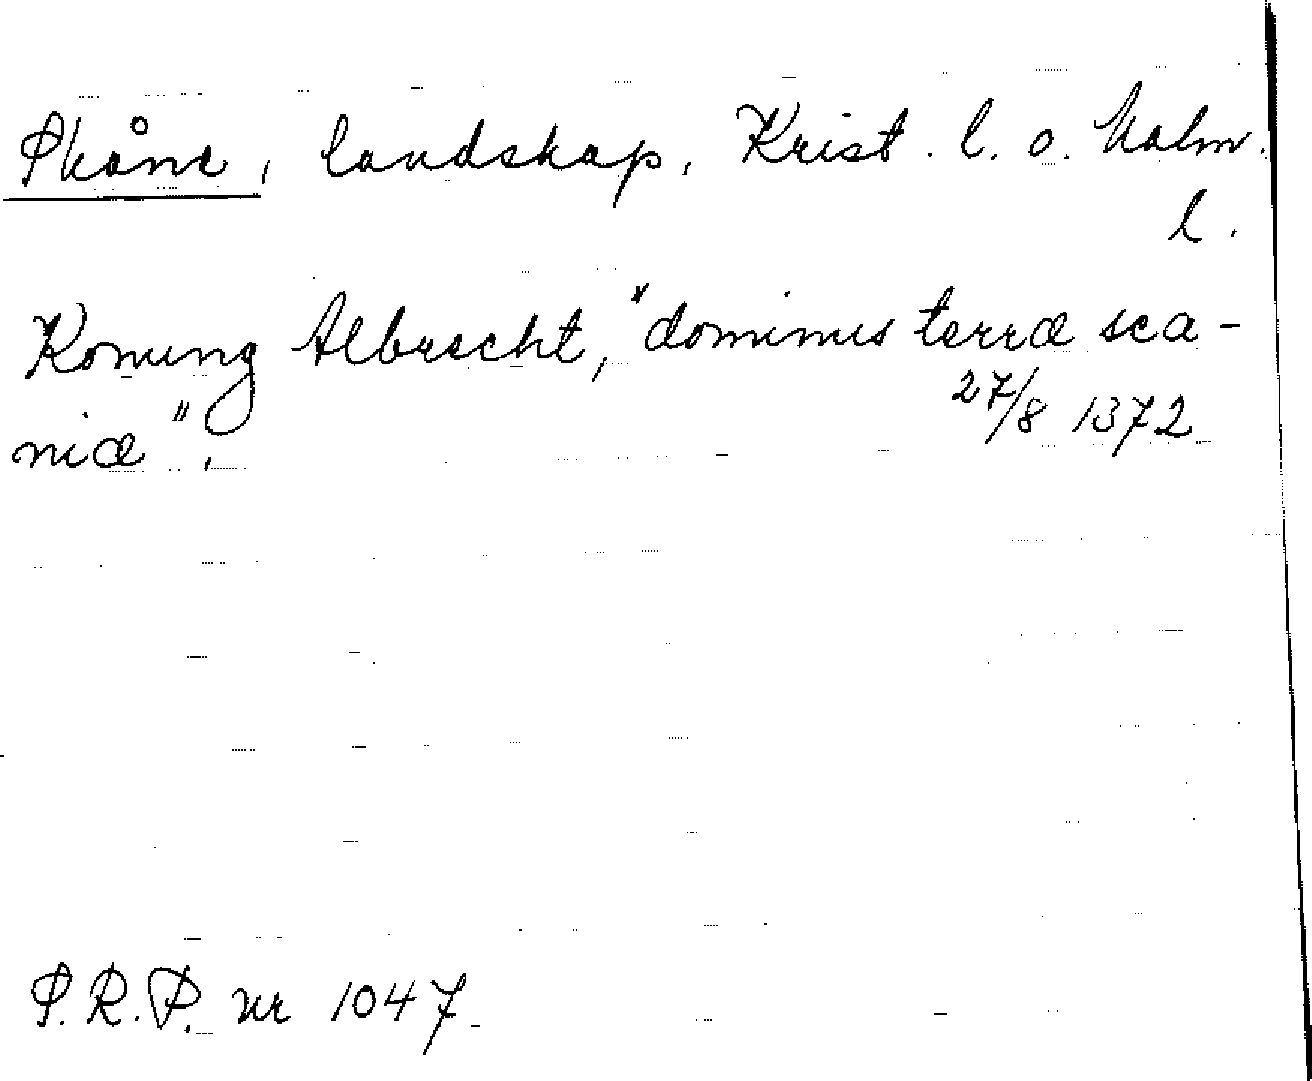 Skåne, landskap, Krist. l. o. Malm.
l.
Konung Albrecht, "dominus terræ sca-
niæ".
27/8 1372
S.R.P. nr 1047